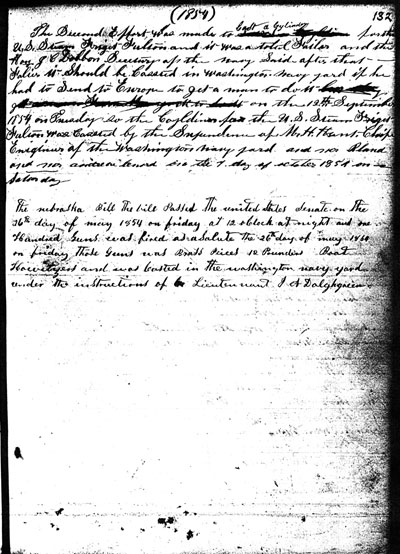 (1854) 132
The Second Effort was made to Cast a Cylinder for the
U.S. Steam Friget Fulson and it was a totel Failer and the
Hon J C Dobbon Secretary of the navy Said after that
Failer it Should be Casted in Washington navy yard if he
had to Send to Europe to get a man to do it
on the 12th September
1854 on Tuesday So the Coylinder for the U.S. Steam Friget
Fulson was Casted by the Supendence of Mr H Hunt Chief
Enigineer of the Washington navy yard and
on the 7 day of 1854 on
Saturday
The nebraska Bill the bill Passed the united states Senate on the
26th day of may 1854 on friday at 12 oclock at night and one
Handred Guns was fired as a salute the 26th day of may 18
on friday those Guns was Brass Pieces 12 Pounders Boat
Howitzers and was casted in the washington navy yard
under the instructions of Lieutennant J A Dalghgreen